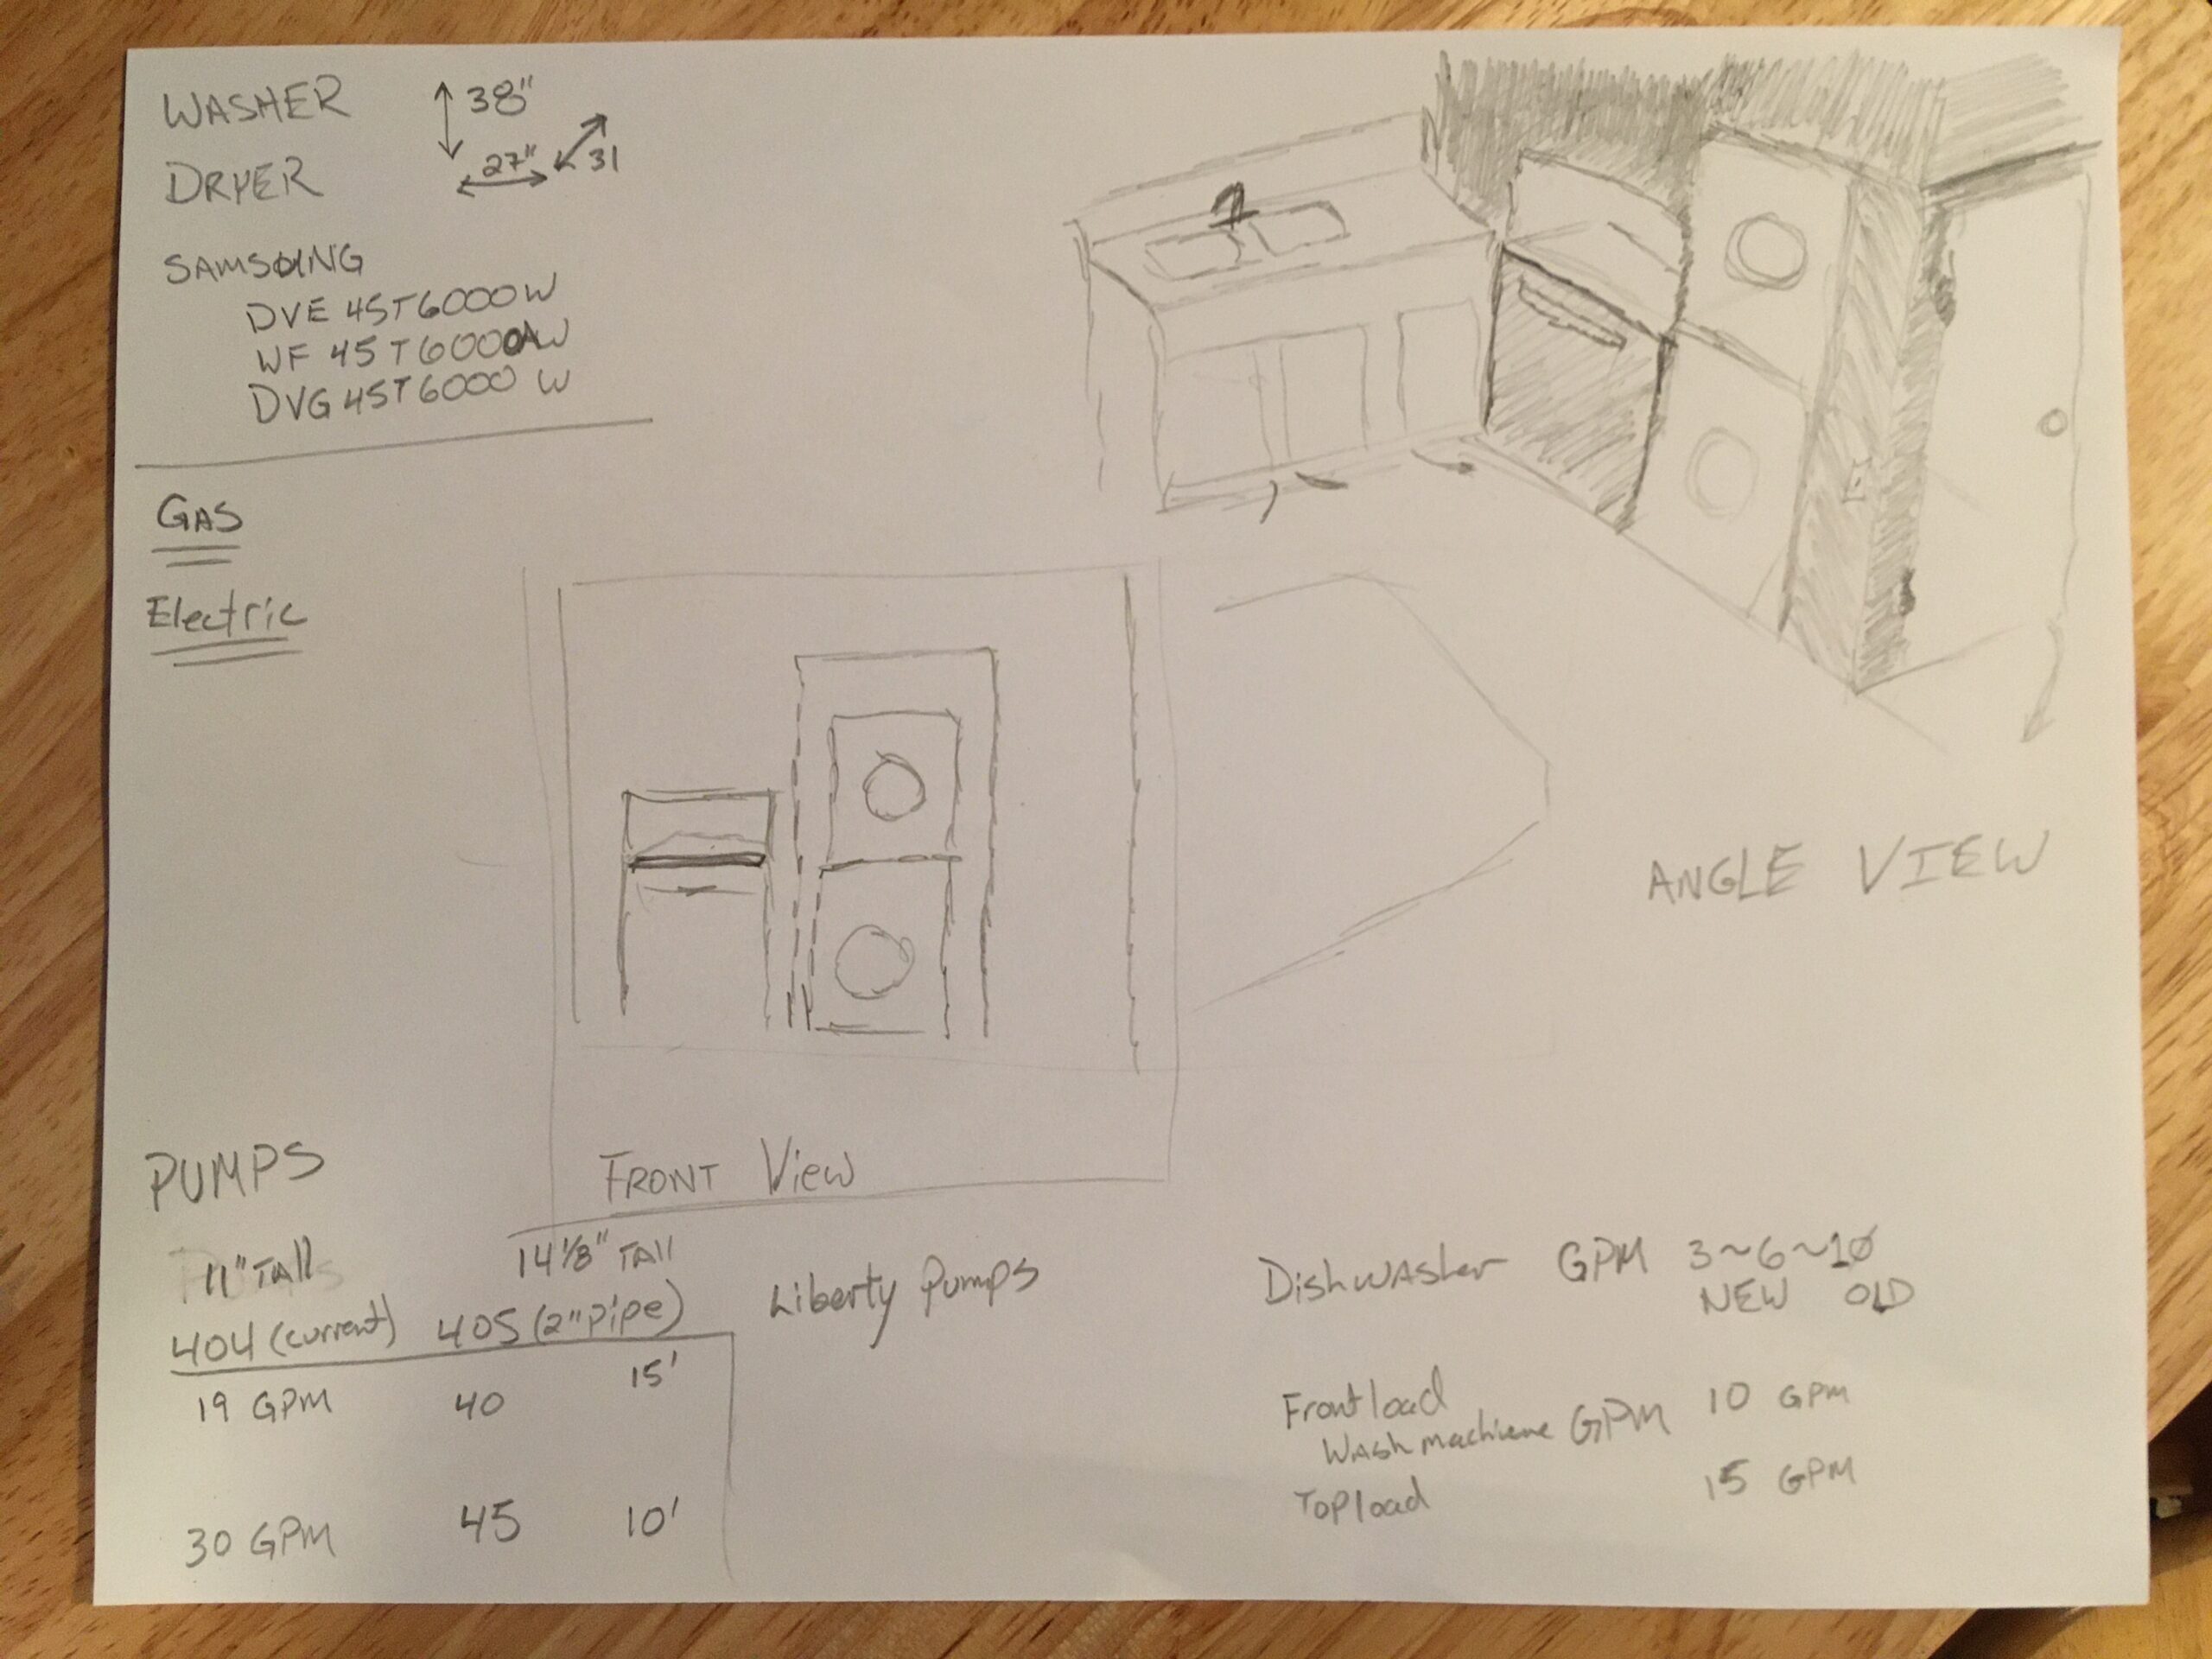 WASHER
38"
DRYER
27"
31
SAMSUNG
DVE 45T6000W
WF 45T6000AW
DVG 45T6000 W
GAS
Electric
ANGLE VIEW
FRONT View
PUMPS
11" TAll
14 1/8" TAll
404 (current)
405 (2" pipe)
Liberty Pumps
19 GPM 40 15'
30 GPM 45 10'
DishwAsher GPM 3~6~10
NEW OLD
Front load
WAsh machiene GPM 10 GPM
Top load 15 GPM